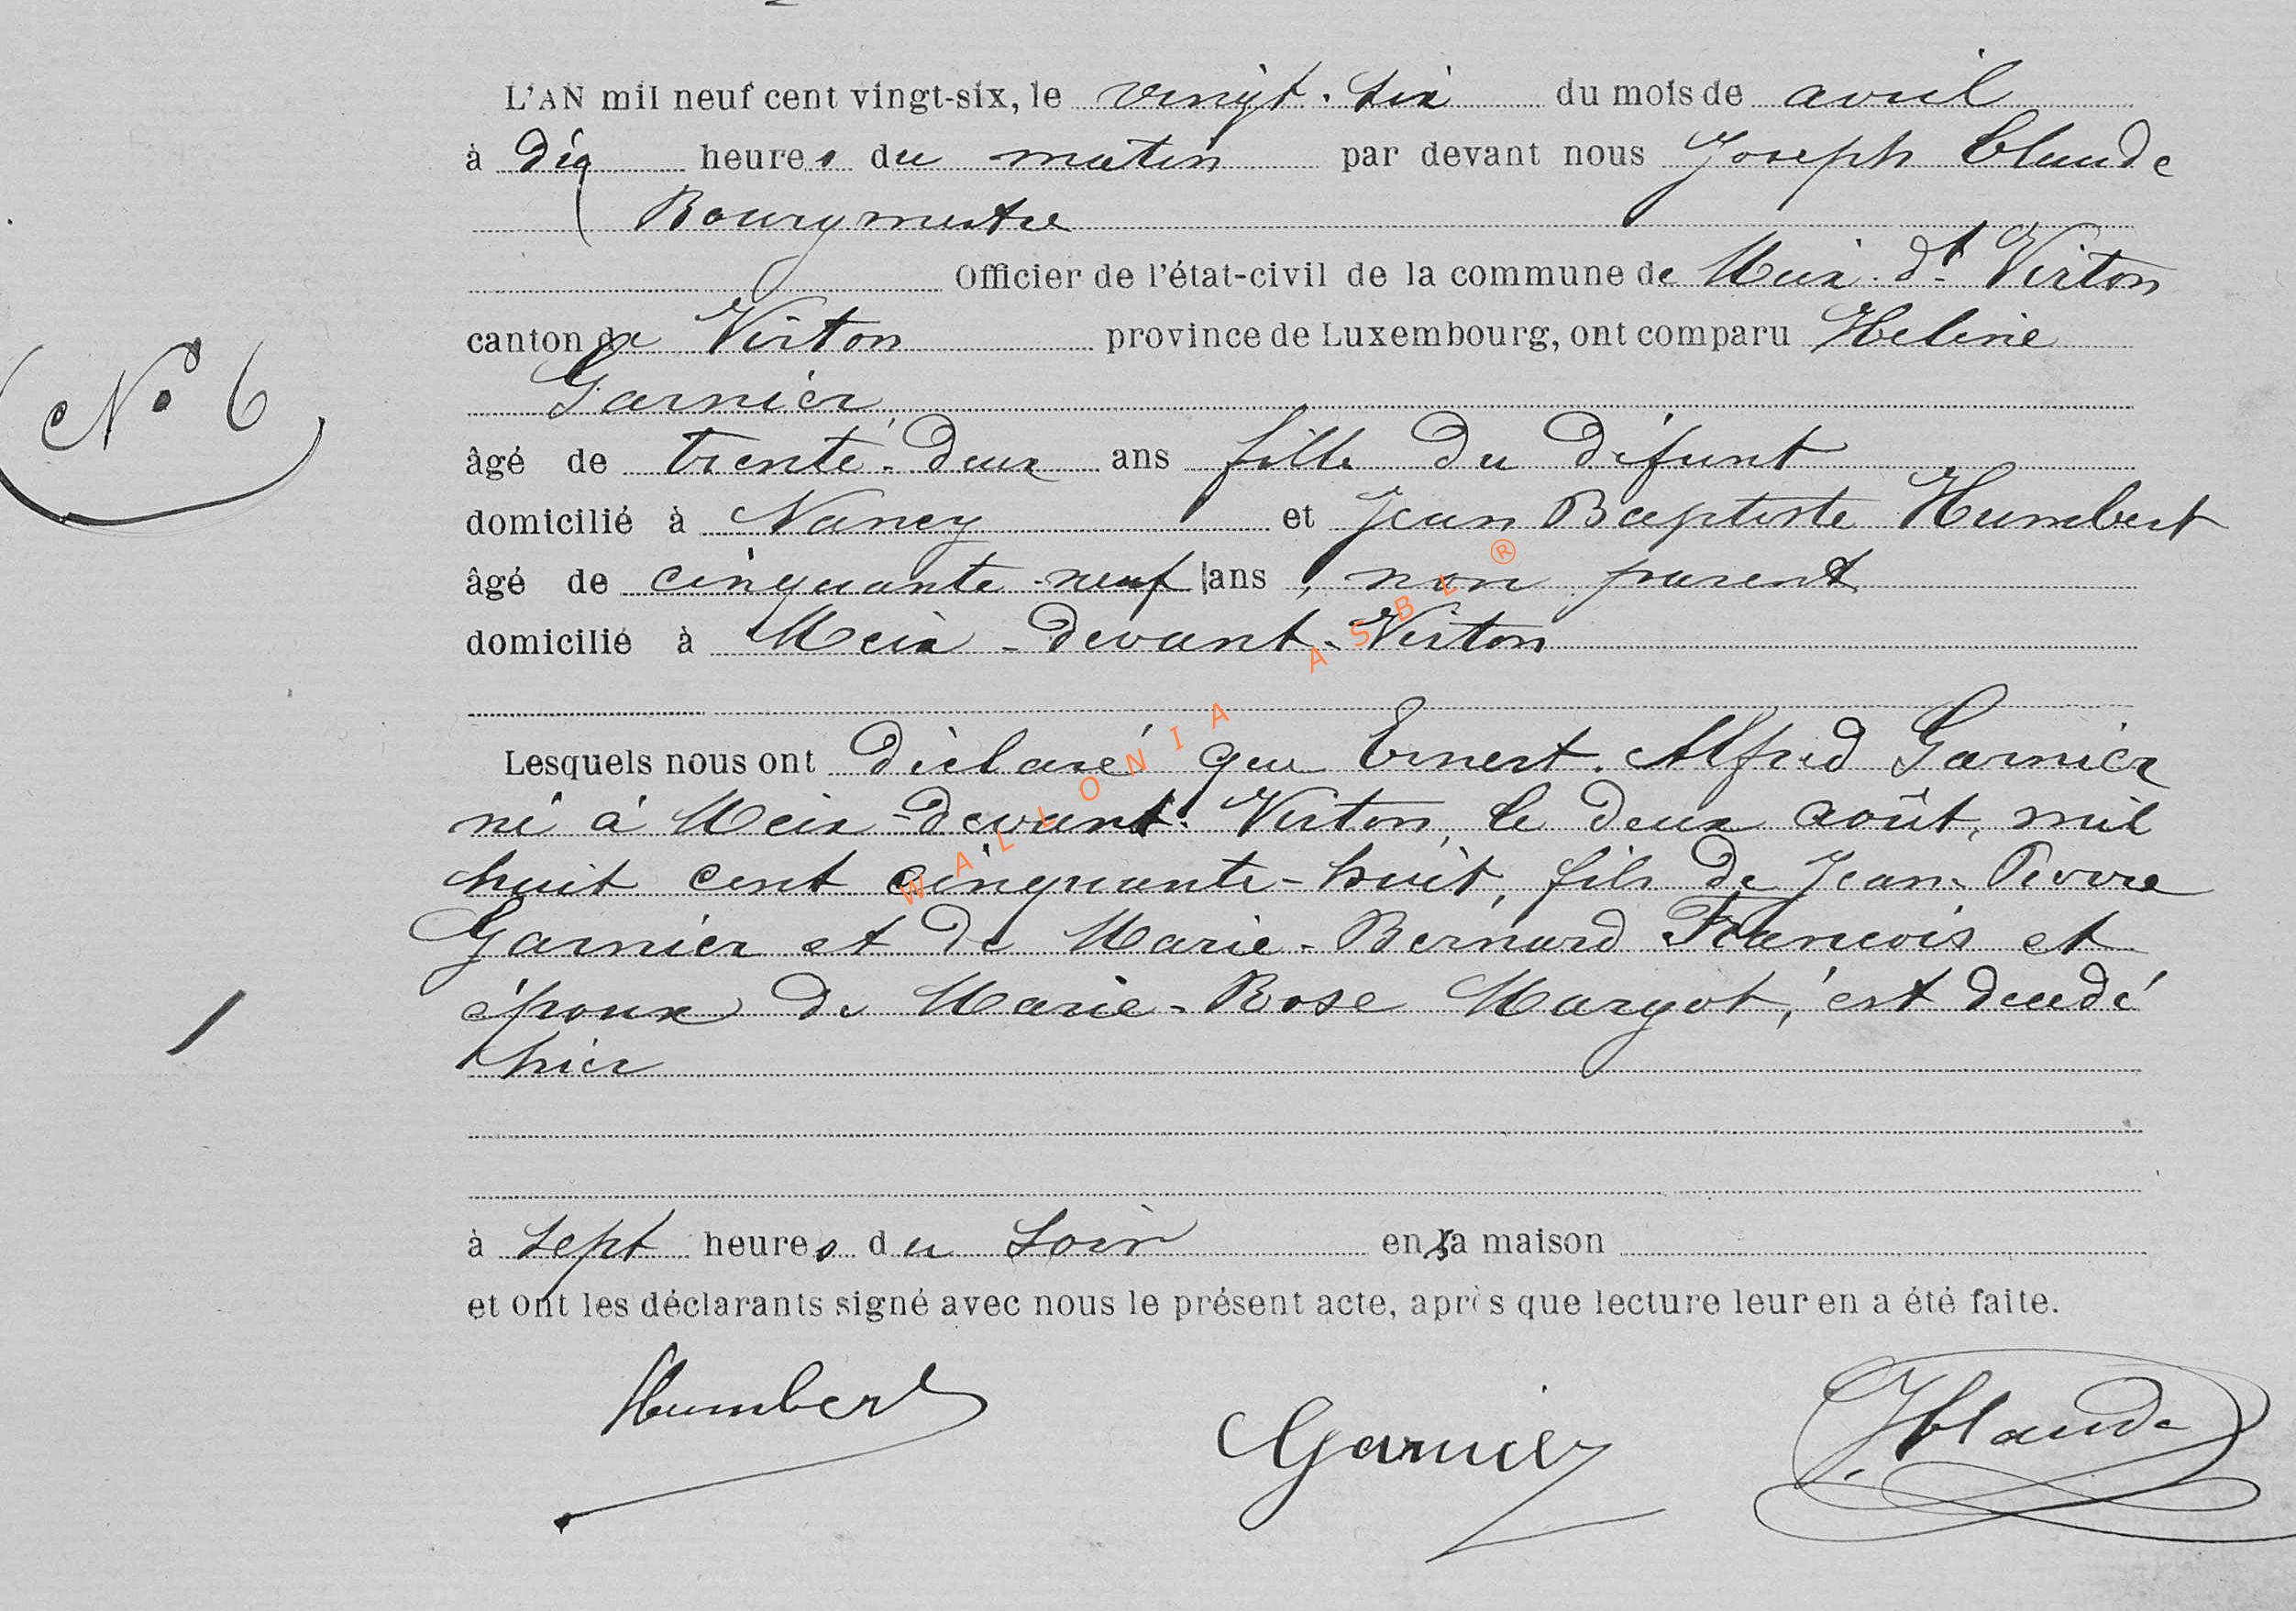 L'AN mil neuf cent vingt-six, le vingt-six du mois de avril
à dix heures du matin par devant nous Joseph Claude
Bourgmestre
Officier de l'état-civil de la commune de Meix-dt Virton
canton de Virton province de Luxembourg, ont comparu Hélène
Garnier
N° 6
âgé de trente-deux ans fille du défunt
domicilié à Nancy et Jean Baptiste Humbert
âgé de cinquante-neuf ans, non parent
domicilié à Meix-devant-Virton
Lesquels nous ont déclaré que Ernest-Alfred Garnier
né à Meix-devant-Virton, le deux août, mil
huit cent cinquante-huit, fils de Jean-Pierre
Garnier et de Marie-Bernard François et
époux de Marie-Rose Margot, est décédé
hier
à sept heures du soir en sa maison
et ont les déclarants signé avec nous le présent acte, après que lecture leur en a été faite.
Humbert Garnier JClaude
WALLONIA ASBL ®